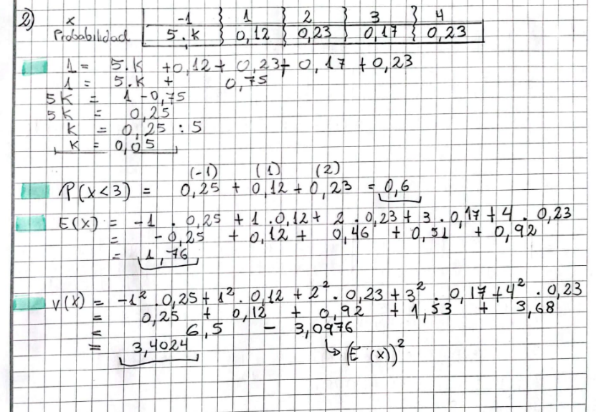 2) x -1 1 2 3 4
Probabilidad 5.K 0,12 0,23 0,17 0,23
1 = 5.K + 0,12 + 0,23 + 0,17 + 0,23
1 = 5.K + 0,75
5K = 1 - 0,75
5K = 0,25
K = 0,25 : 5
K = 0,05
(-1) (1) (2)
P(x<3) = 0,25 + 0,12 + 0,23 = 0,6
E(x) = -1 . 0,25 + 1 . 0,12 + 2 . 0,23 + 3 . 0,17 + 4 . 0,23
= -0,25 + 0,12 + 0,46 + 0,51 + 0,92
= 1,76
V(x) = -1² . 0,25 + 1² . 0,12 + 2² . 0,23 + 3² . 0,17 + 4² . 0,23
= 0,25 + 0,12 + 0,92 + 1,53 + 3,68
= 6,5 - 3,0976
= 3,4024 (E(x))²